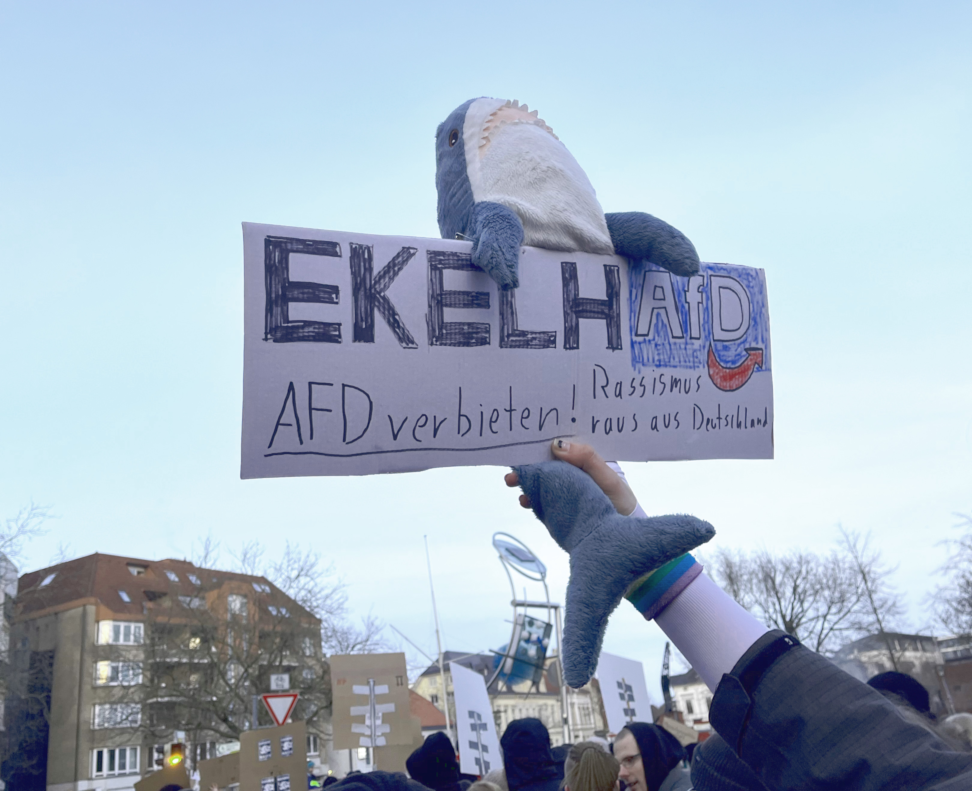 EKELHAfD
AFD verbieten!
Rassismus
raus aus Deutschland